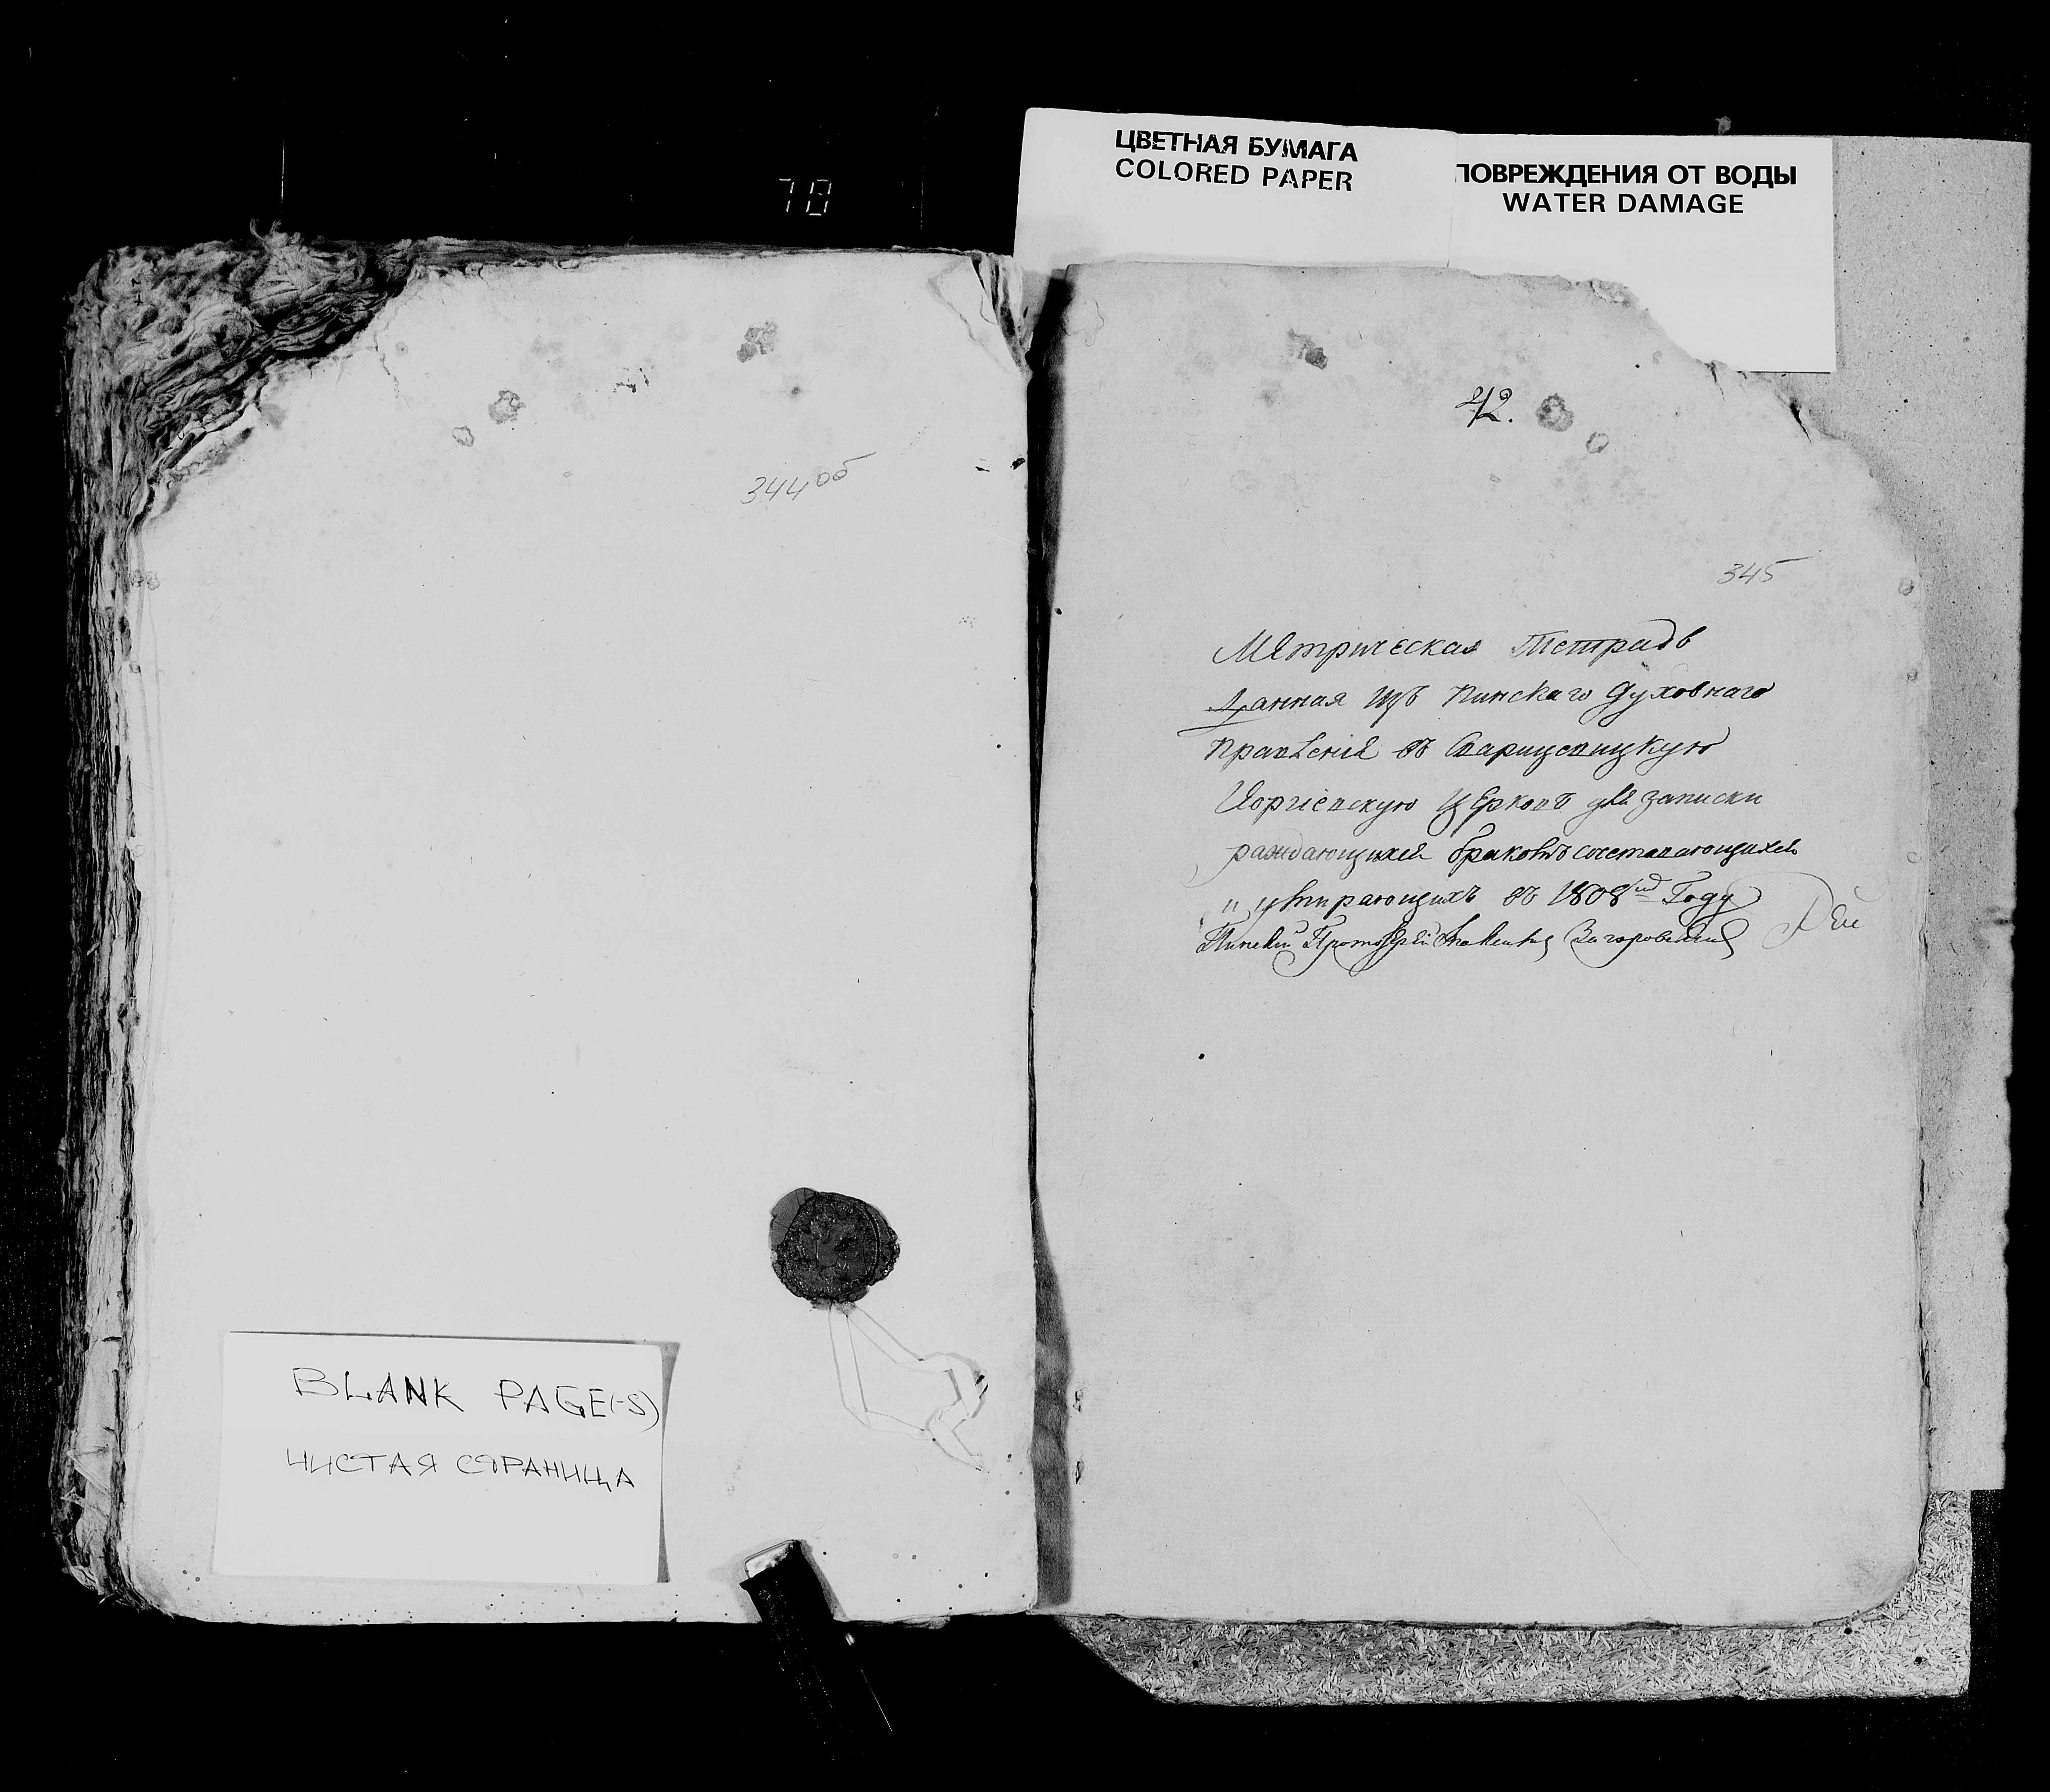 70
ЦВЕТНАЯ БУМАГА
COLORED PAPER
ПОВРЕЖДЕНИЯ ОТ ВОДЫ
WATER DAMAGE
344об
BLANK PAGE(-S)
ЧИСТАЯ СТРАНИЦА
42.
345
Метрическая Тетрадь
Данная изъ Пинскаго Духовнаго
правленія въ Парищепицкую
церковь для записки
раждающихся браковъ сочетавающихся
и умирающихъ въ 1808мъ Году
Пинскій Протоіерей